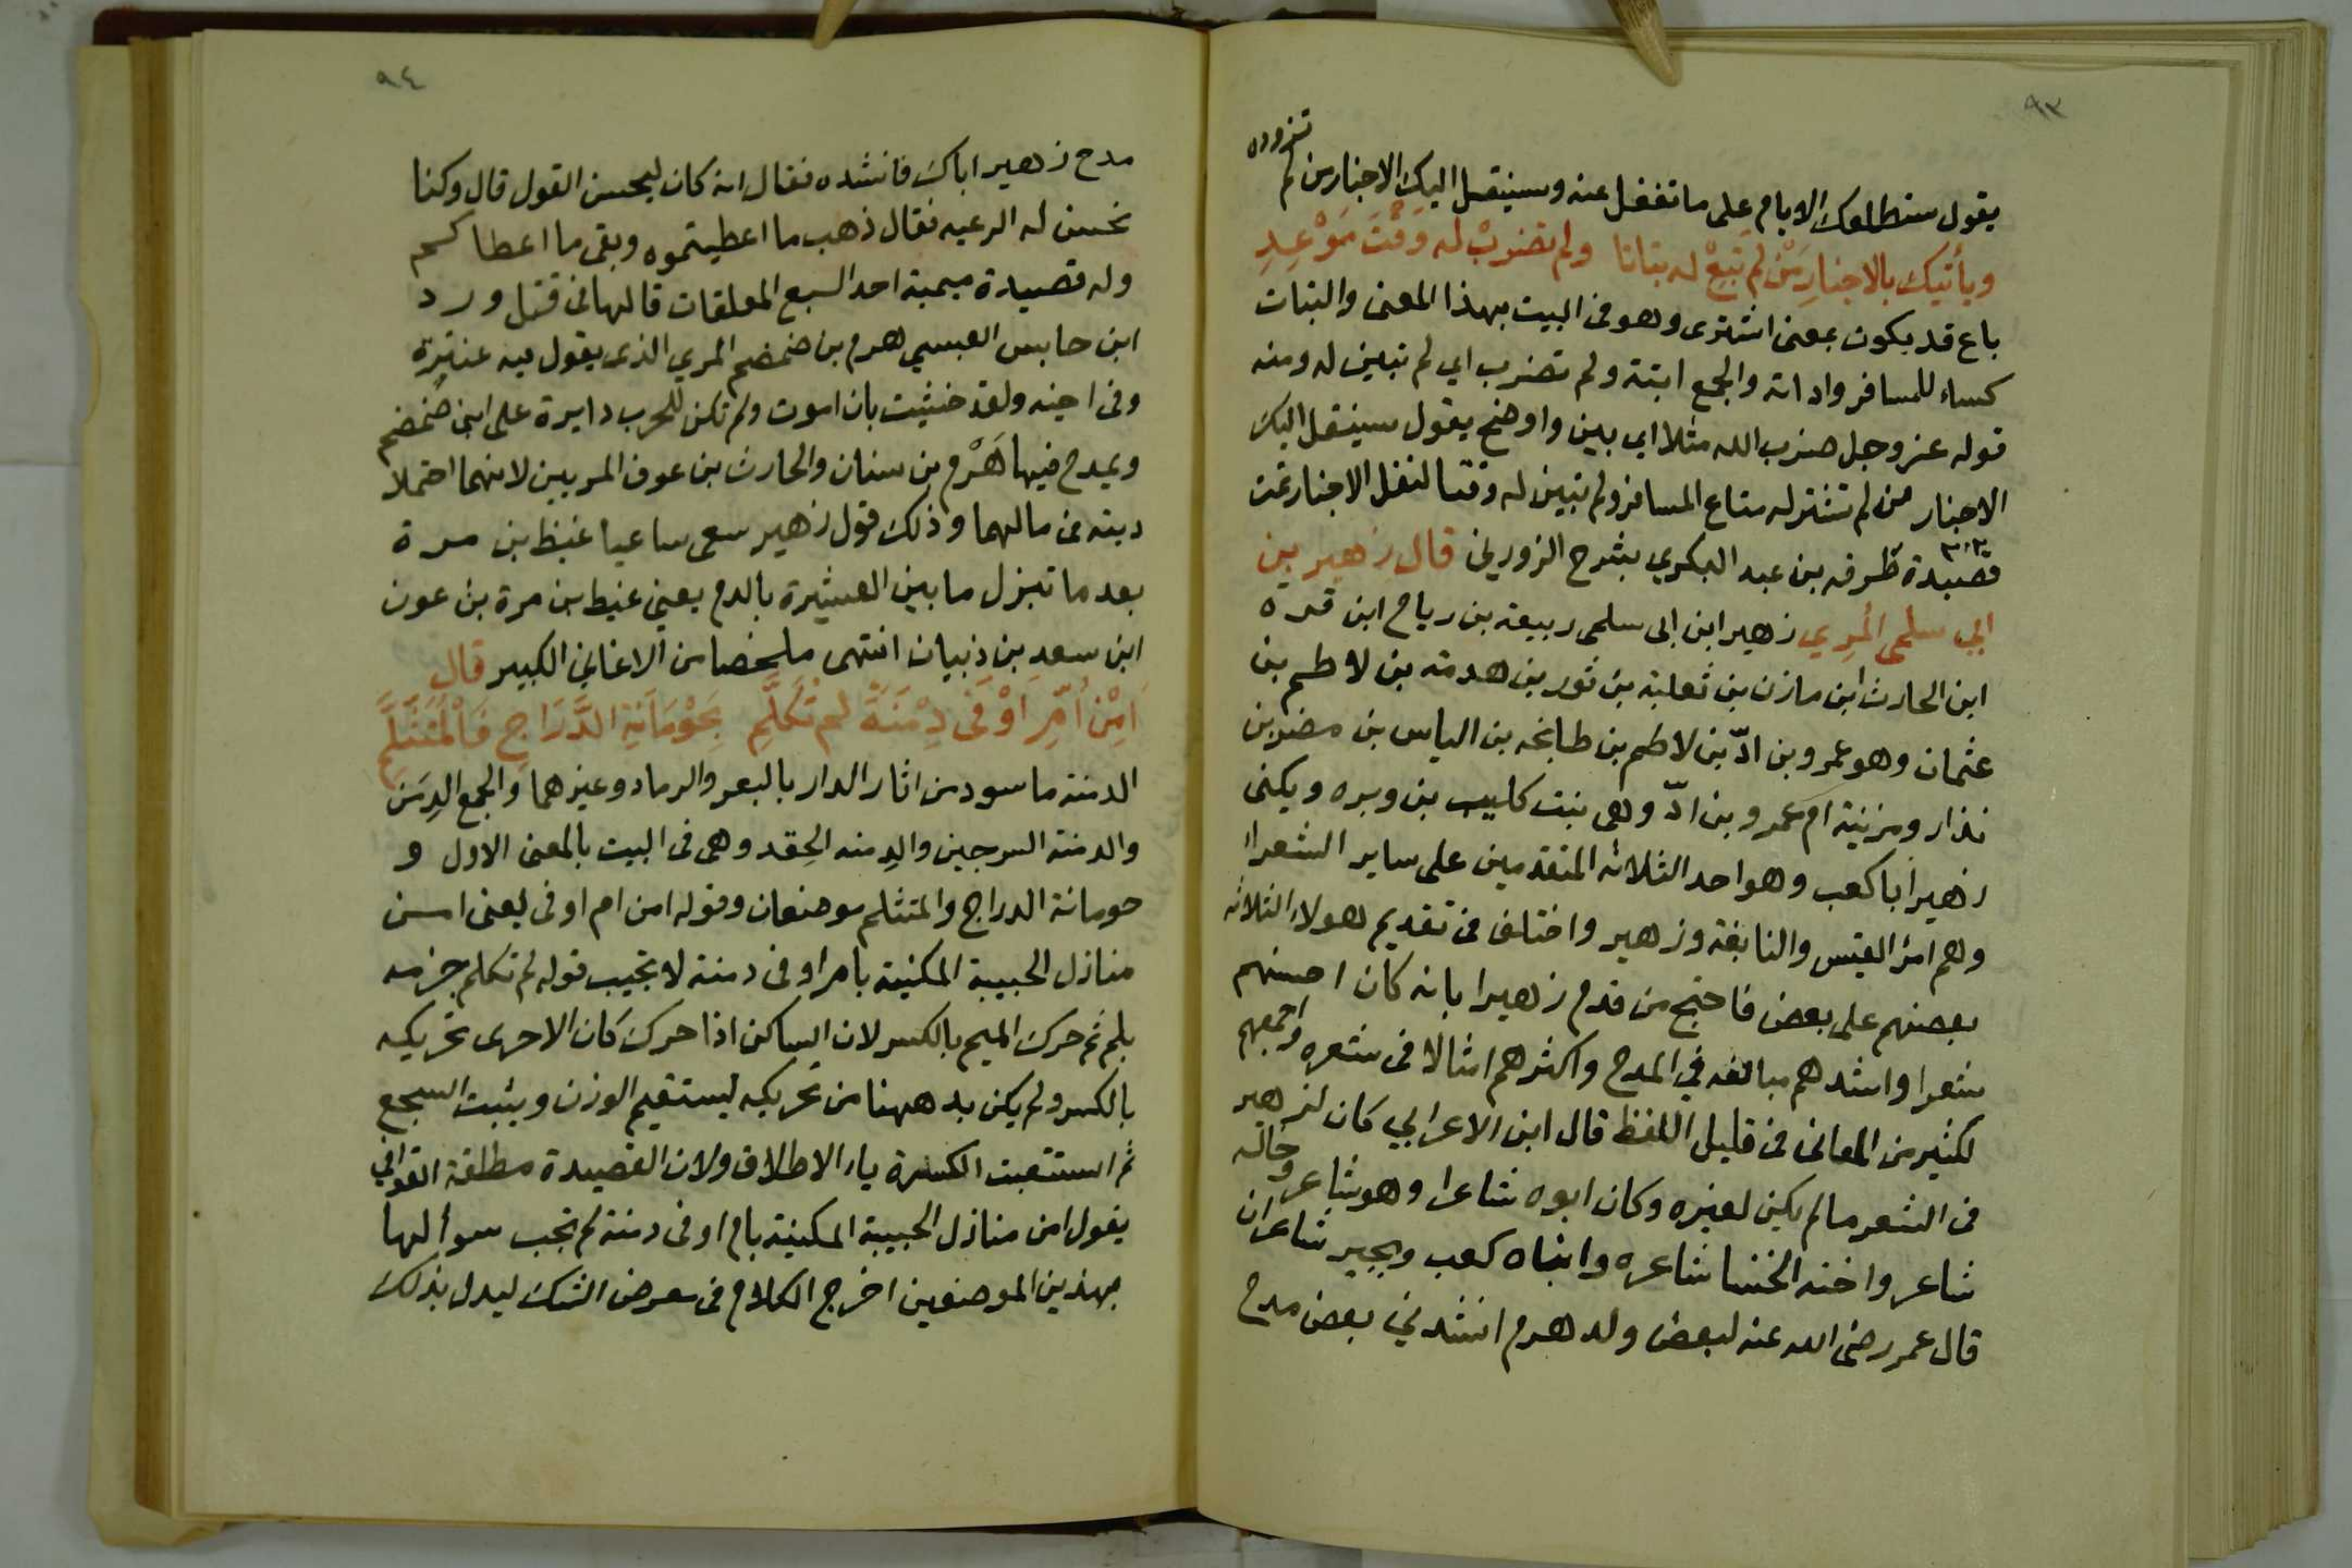 ٩٣
يقول ستطلعك الايام على ما تغفل عنه وسينقل اليك الاخبار من لم تزوده
ويأتيك بالاخبار من لم تبع له بتاتا ولم تضرب له وقت موعد
باع قد يكون بمعنى اشترى وهو فى البيت بهذا المعنى والبتات
كساء للمسافر واداته والجمع ابتة ولم تضرب اي لم تبين له ومنه
قوله عز وجل ضرب الله مثلا اي بين واوضح يقول سينقل اليك
الاخبار من لم تشتر له متاع المسافر ولم تبين له وقتا لنقل الاخبار تمت
قصيدة طرفه بن عبد البكري بشرح الزوزني قال زهير بن
ابي سلمى المري زهير ابن ابى سلمى ربيعة بن رياح ابن قره
ابن الحارث ابن مازن بن ثعلبة بن ثور بن هدمة بن لاطم بن
عثمان وهو عمرو بن ادّ بن لاطم بن طابخه بن الياس بن مضر بن
نذار ومزنية ام عمرو بن ادّ وهى بنت كليب بن وبره ويكنى
زهير ابا كعب وهو احد الثلاثه المتقدمين على ساير الشعرا
وهم امرؤ القيس والنابغة وزهير واختلف فى تقديم هولاء الثلاثه
بعضهم على بعض فاحتج من قدم زهيرا بانه كان احسنهم
شعرا واشدهم مبالغه في المدح واكثرهم امثالا فى شعره واجمعهم
لكثير من المعانى فى قليل اللفظ قال ابن الاعرابي كان لزهير
فى الشعر ما لم يكن لغيره وكان ابوه شاعرا وهو شاعر وخاله
شاعر واخته الخنسا شاعره وابناه كعب وبجير شاعران
قال عمر رضى الله عنه لبعض ولد هرم انشدني بعض مدح
٩٤
مدح زهير اباك فانشده فقال انه كان ليحسن القول قال وكنا
نحسن له الرعيه فقال ذهب ما اعطيتموه وبقى ما اعطاكم
وله قصيدة ميمية احد السبع المعلقات قالها فى قتل ورد
ابن حابس العبسي هرم بن ضمضم المري الذى يقول فيه عنترة
وفى اخيه ولقد خشيت بان اموت ولم تكن للحرب دايرة على ابنى ضمضم
ويمدح فيها هَرْم بن سنان والحارث بن عوف المريين لانهما احتملا
ديته فى مالهما وذلك قول زهير سعى ساعيا غيظ بن مرة
بعد ما تبزل ما بين العشيرة بالدم يعنى غيظ بن مرة بن عوف
ابن سعد بن ذبيان انتهى ملخصا من الاغاني الكبير قال
اَمِنْ اُمِّ اَوْفَى دِمْنَةً لم تُكَلَّمِ بِحَوْمَانَةِ الدَّرَاجِ فَالْمُتَثَلَّمِ
الدمنة ما سود من اثار الدار بالبعر والرماد وغيرهما والجمع الدِمَن
والدمنة السرجين والدِمنه الحِقد وهى فى البيت بالمعنى الاول و
حومانة الدراج والمتثلم موضعان وقوله امن ام اوفى يعنى امن
منازل الحبيبة المكنية بام اوفى دمنة لا تجيب قوله لم تكلم جزمه
بلم ثم حرك الميم بالكسر لان الساكن اذا حرك كان الاحرى تحريكه
بالكسر ولم يكن بد ههنا من تحريكه ليستقيم الوزن ويثبت السجع
ثم استتبعت الكسرة ياء الاطلاق ولان القصيدة مطلقة القوافي
يقول امن منازل الحبيبة المكنية بام اوفى دمنة لم تجب سوألها
بهذين الموضعين اخرج الكلام فى معرض الشك ليدل بذلك